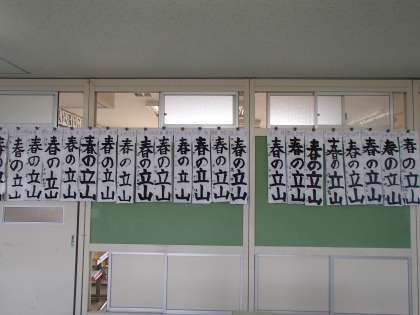 春の立山
春の立山
春の立山
春の立山
春の立山
春の立山
春の立山
春の立山
春の立山
春の立山
春の立山
春の立山
春の立山
春の立山
春の立山
春の立山
春の立山
春の立山
春の立山
春の立山
春の立山